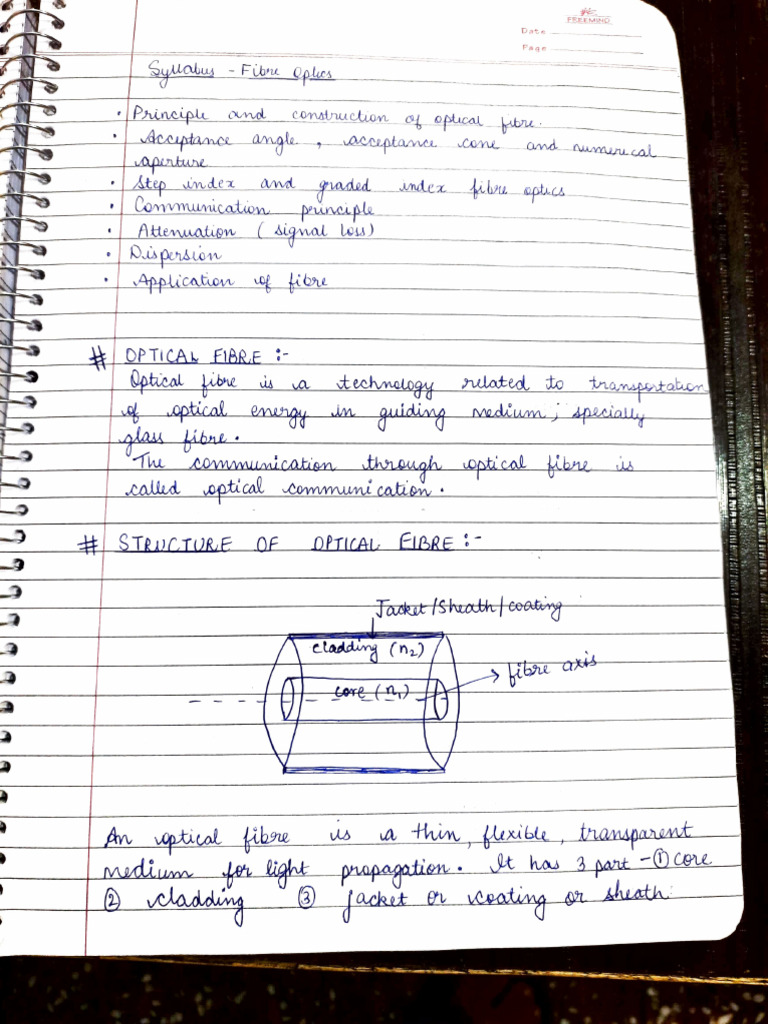 FREEMIND
Date
Page
Syllabus - Fibre Optics
• Principle and construction of optical fibre.
• Acceptance angle, acceptance cone and numerical
aperture
• Step index and graded index fibre optics
• Communication principle
• Attenuation (signal loss)
• Dispersion
• Application of fibre
# OPTICAL FIBRE :-
Optical fibre is a technology related to transportation
of optical energy in guiding medium; specially
glass fibre.
The communication through optical fibre is
called optical communication.
# STRUCTURE OF OPTICAL FIBRE :-
Jacket/Sheath/coating
cladding (n₂)
core (n₁)
fibre axis
An optical fibre is a thin, flexible, transparent
medium for light propagation. It has 3 part - ① core
② cladding ③ jacket or coating or sheath.